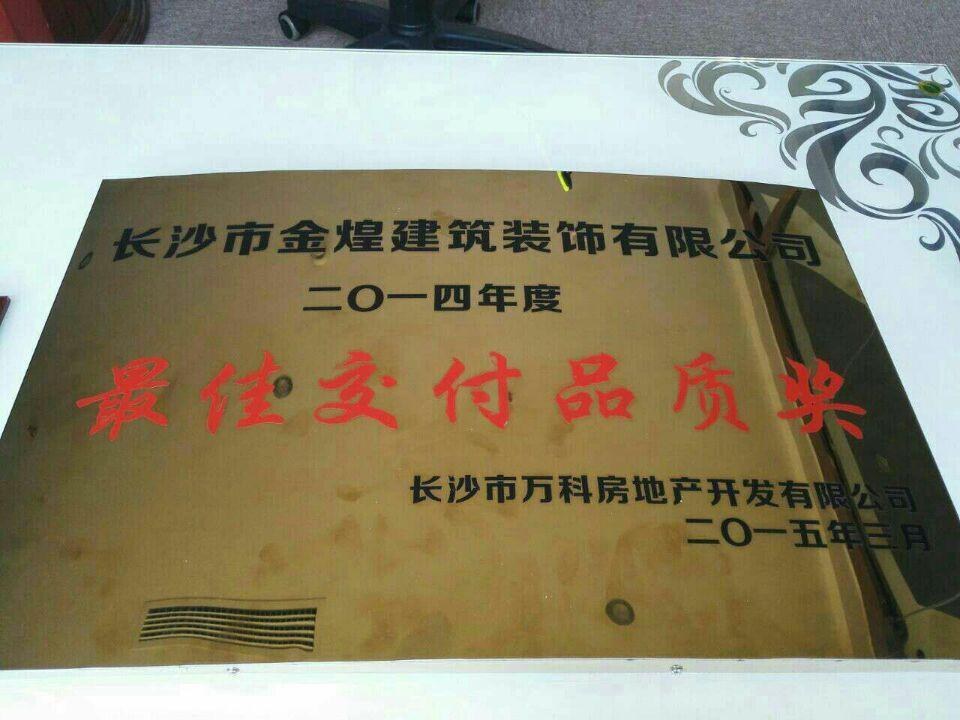 长沙市金煌建筑装饰有限公司
二〇一四年度
最佳交付品质奖
长沙市万科房地产开发有限公司
二〇一五年三月